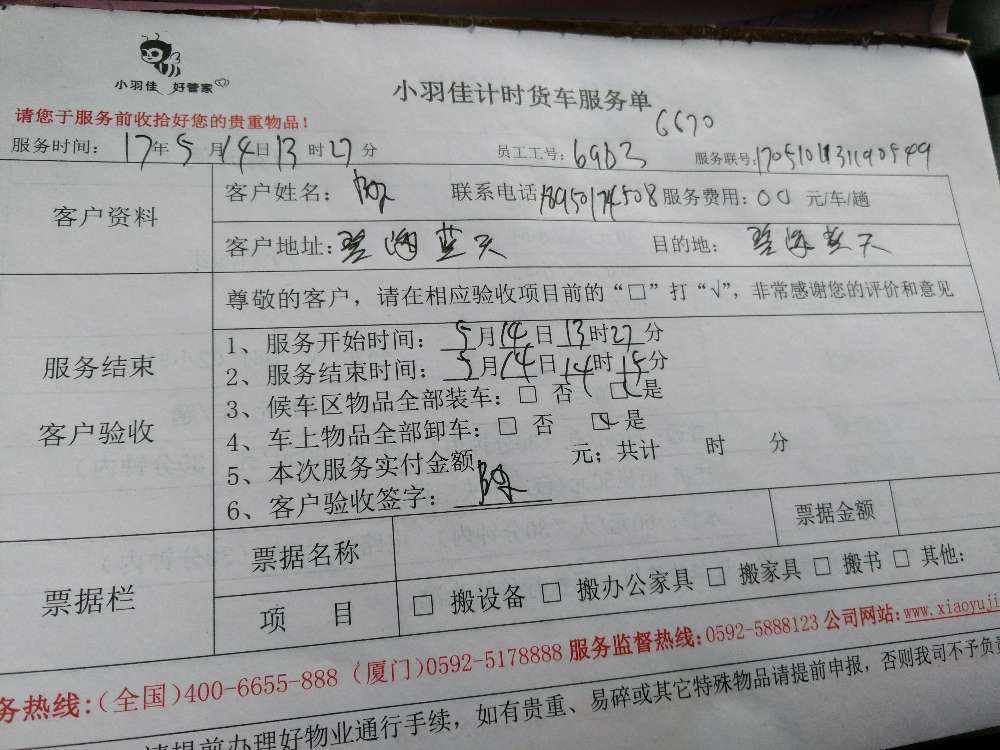 小羽佳 好管家
小羽佳计时货车服务单
6670
请您于服务前收拾好您的贵重物品！
服务时间：17年5月14日13时27分 员工工号：6963 服务联号：
客户资料
客户姓名： 联系电话 18950174508 服务费用：00 元/车/趟
客户地址：碧海蓝天 目的地：碧海蓝天
尊敬的客户，请在相应验收项目前的“□”打“√”，非常感谢您的评价和意见
服务结束
客户验收
1、服务开始时间：5月14日13时27分
2、服务结束时间：5月14日14时15分
3、候车区物品全部装车：□ 否 □是
4、车上物品全部卸车：□ 否 □是
5、本次服务实付金额 元；共计 时 分
6、客户验收签字：
票据栏
票据名称 票据金额
项 目 □ 搬设备 □ 搬办公家具 □ 搬家具 □ 搬书 □ 其他：
务热线：(全国)400-6655-888 (厦门)0592-5178888 服务监督热线：0592-5888123 公司网站：www.xiaoyuji
请提前办理好物业通行手续，如有贵重、易碎或其它特殊物品请提前申报，否则我司不予负责